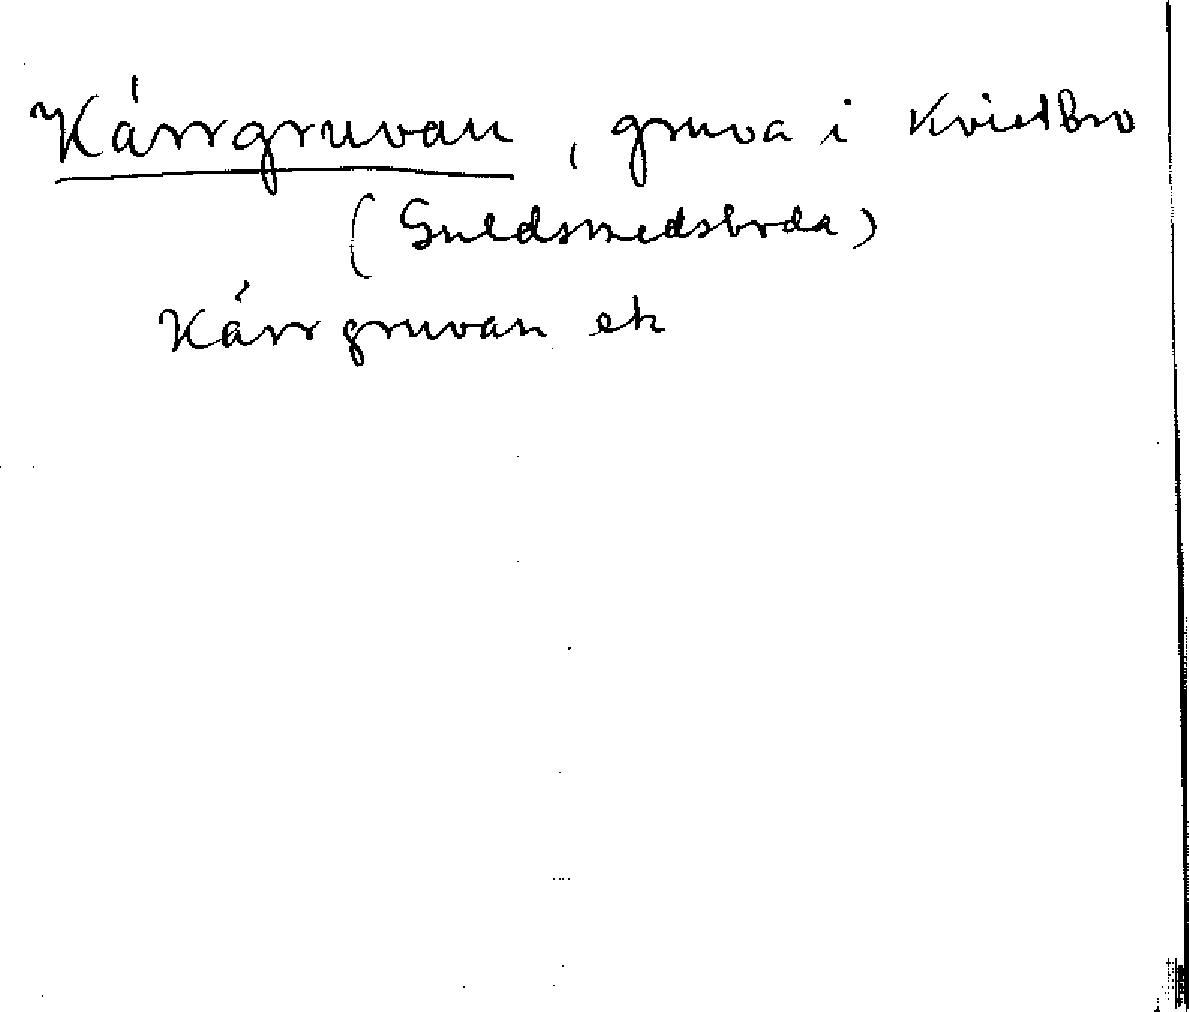 Kärrgruvan, gruva i Kvistbro
(Guldsmedsboda)
Kärrgruvan ek